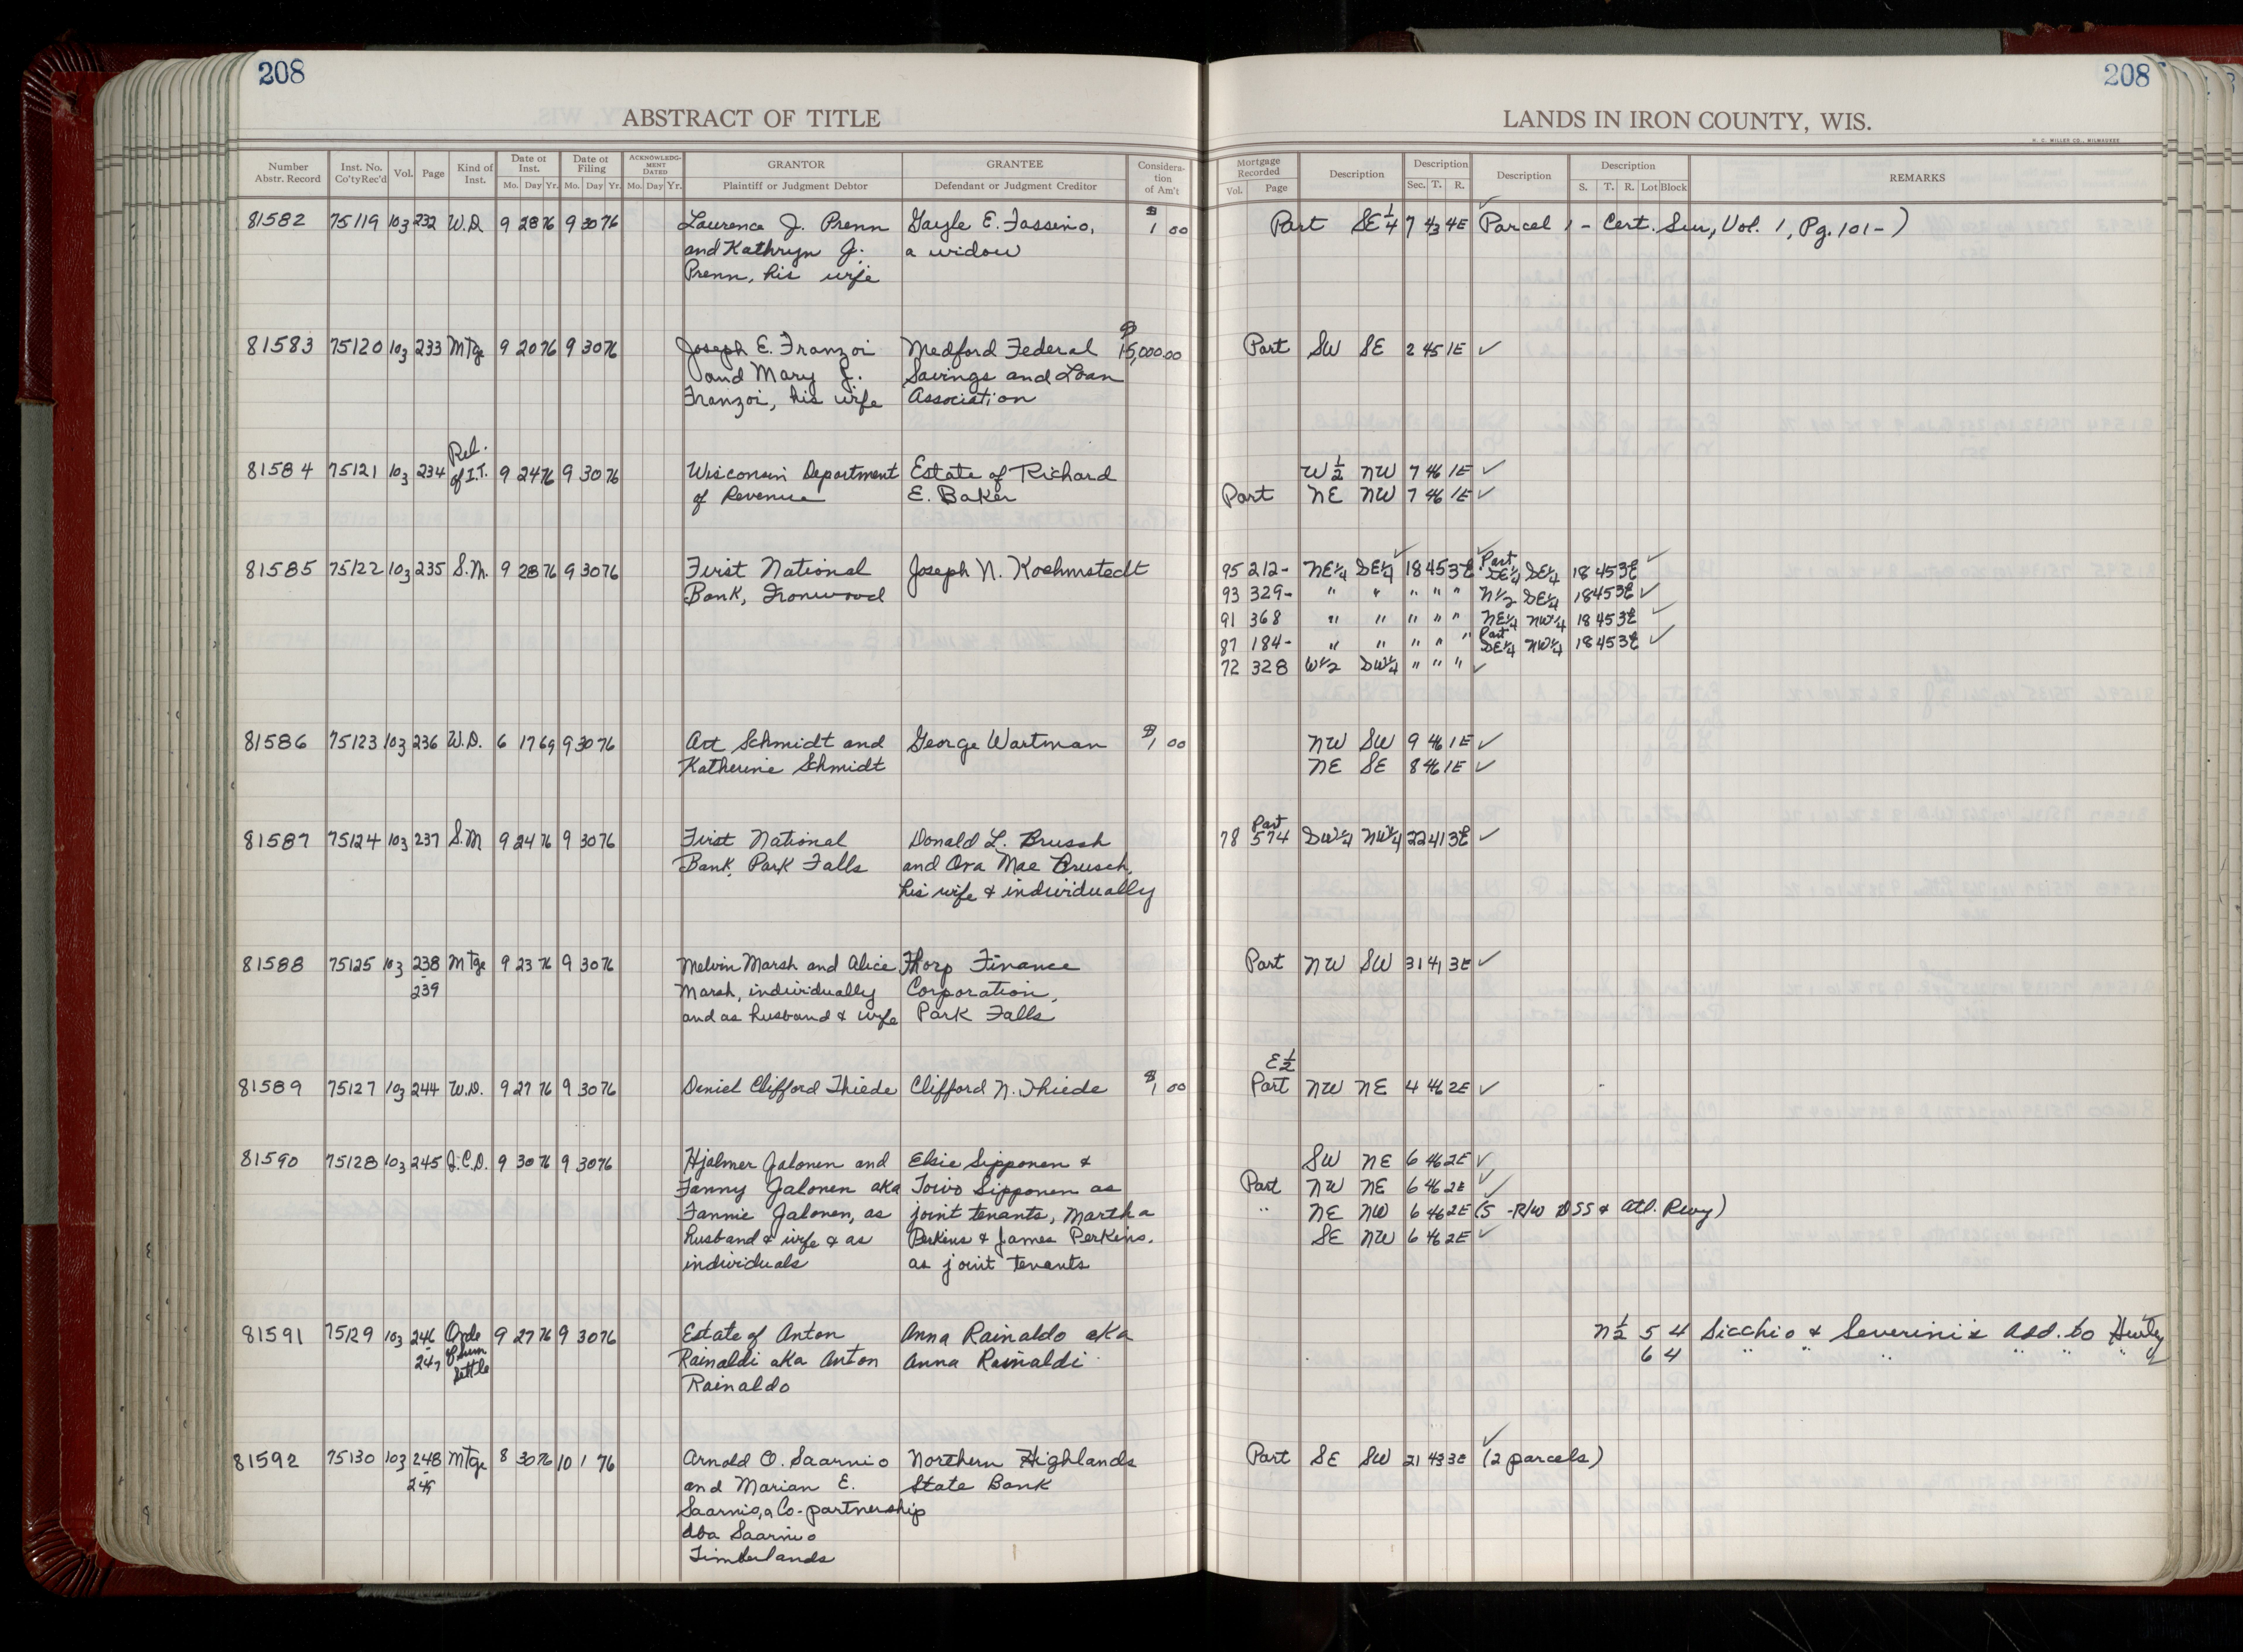 208
208
ABSTRACT OF TITLE
LANDS IN IRON COUNTY, WIS.
H. C. MILLER CO., MILWAUKEE
Number Abstr. Record Inst. No. Co'ty Rec'd Vol. Page Kind of Inst. Date of Inst. Mo. Day Yr. Date of Filing Mo. Day Yr. ACKNOWLEDGMENT DATED Mo. Day Yr. GRANTOR Plaintiff or Judgment Debtor GRANTEE Defendant or Judgment Creditor Consideration of Am't Mortgage Recorded Vol. Page Description Description Sec. T. R. Description Description S. T. R. Lot Block REMARKS
81582 75119 103 232 W.D. 9 28 76 9 30 76 Laurence J. Prenn Gayle E. Fassino, $1 00 Part SE 1/4 7 43 4E ✓ Parcel 1 - Cert. Sur, Vol. 1, Pg. 101-)
and Kathryn J. a widow
Prenn, his wife
81583 75120 103 233 Mtge 9 20 76 9 30 76 Joseph E. Franzoi Medford Federal $15,000.00 Part SW SE 2 45 1E ✓
and Mary L. Savings and Loan
Franzoi, his wife Association
81584 75121 103 234 Rel. of I.T. 9 24 76 9 30 76 Wisconsin Department Estate of Richard W 1/2 NW 7 46 1E ✓
of Revenue E. Baker Part NE NW 7 46 1E ✓
81585 75122 103 235 S.M. 9 28 76 9 30 76 First National Joseph N. Koehmstedt 95 212- NE1/4 SE1/4 18 45 3E ✓ Part SE1/4 SE1/4 18 45 3E ✓
Bank, Ironwood 93 329- " " " " " N1/2 SE1/4 18 45 3E ✓
91 368 " " " " " NE1/4 NW1/4 18 45 3E ✓
87 184- " " " " " Part SE1/4 NW1/4 18 45 3E ✓
72 328 W1/2 SW1/4 " " " ✓
81586 75123 103 236 W.D. 6 17 69 9 30 76 Art Schmidt and George Wartman $1 00 NW SW 9 46 1E ✓
Katherine Schmidt NE SE 8 46 1E ✓
81587 75124 103 237 S.M 9 24 76 9 30 76 First National Donald L. Brusch 78 Part 574 SW1/4 NW1/4 22 41 3E ✓
Bank, Park Falls and Ora Mae Brusch,
his wife & individually
81588 75125 103 238-239 Mtge 9 23 76 9 30 76 Melvin Marsh and Alice Thorp Finance Part NW SW 31 41 3E ✓
Marsh, individually Corporation,
and as husband & wife Park Falls
81589 75127 103 244 W.D. 9 27 76 9 30 76 Deniel Clifford Thiede Clifford N. Thiede $1 00 E 1/2 Part NW NE 4 46 2E ✓
81590 75128 103 245 Q.C.D. 9 30 76 9 30 76 Hjalmer Jalonen and Elsie Sipponen & SW NE 6 46 2E ✓
Fanny Jalonen aka Toivo Sipponen as Part NW NE 6 46 2E ✓
Fannie Jalonen, as joint tenants, Martha " NE NW 6 46 2E (S -R/W DSS & Atl. Rwy)
husband & wife & as Perkins & James Perkins. SE NW 6 46 2E ✓
individuals as joint tenants
81591 75129 103 246-247 Orde of Sum Settle 9 27 76 9 30 76 Estate of Anton Anna Rainaldo aka N 1/2 5 4 Sicchio & Severini's Add. to Hurley
Rainaldi aka Anton Anna Rainaldi 6 4 " " " " " "
Rainaldo
81592 75130 103 248-249 Mtge 8 30 76 10 1 76 Arnold O. Saarnio Northern Highlands Part SE SW 21 43 3E ✓ (2 parcels)
and Marian E. State Bank
Saarnio, a Co-partnership
dba Saarnio
Timberlands